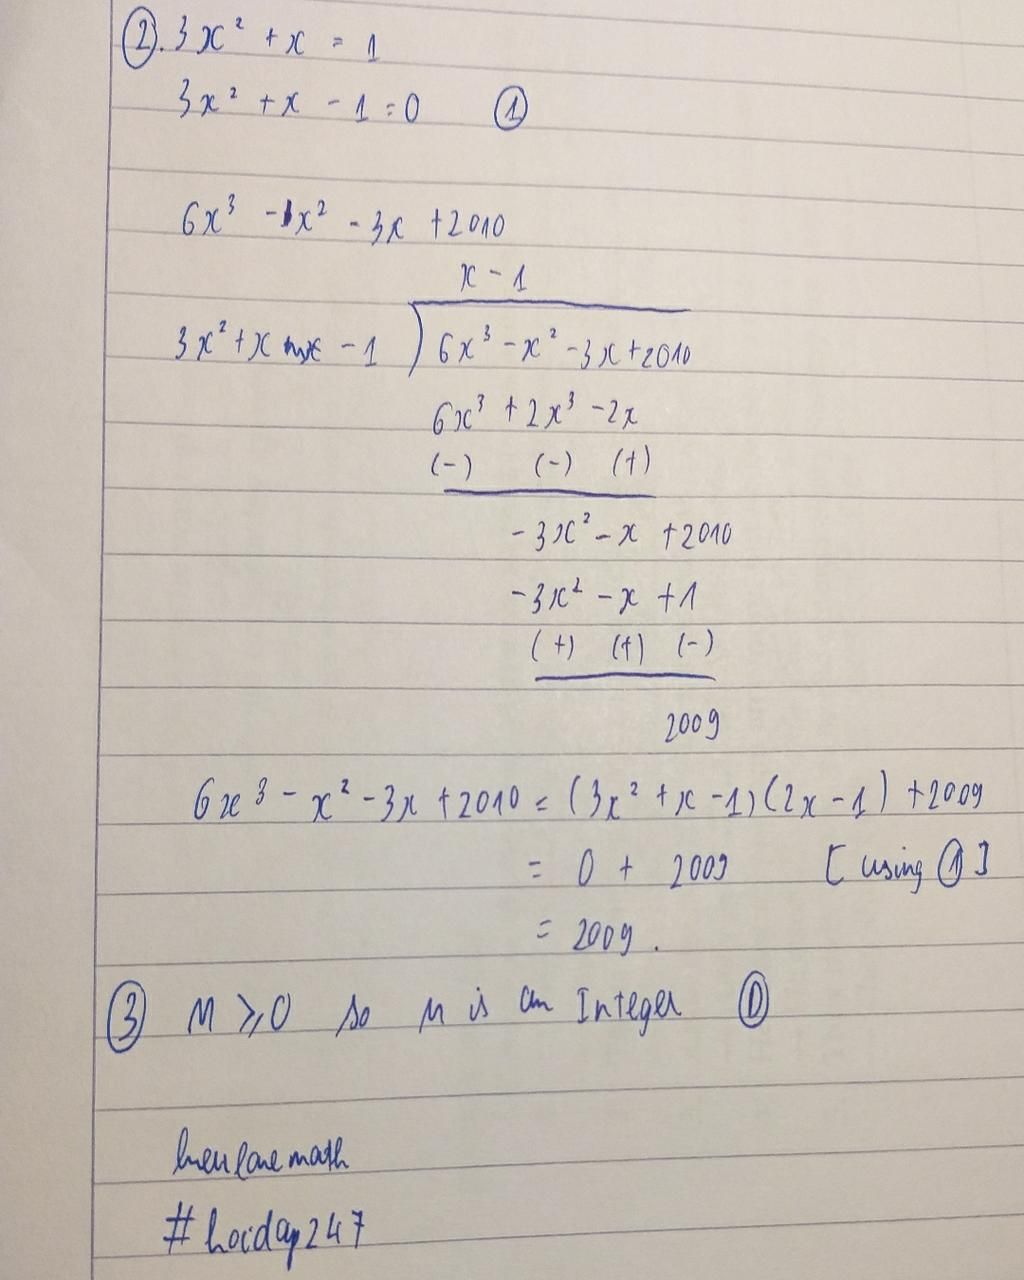 ②. 3x² + x = 1
3x² + x - 1 = 0 ①
6x³ - 1x² - 3x + 2010
x - 1
3x² + x - 1 ) 6x³ - x² - 3x + 2010
6x³ + 2x³ - 2x
(-) (-) (+)
- 3x² - x + 2010
- 3x² - x + 1
(+) (+) (-)
2009
6x³ - x² - 3x + 2010 = (3x² + x - 1)(2x - 1) + 2009
= 0 + 2009 [using ①]
= 2009.
③ M ≥ 0 so M is an Integer Ⓓ
math
#hoidap247